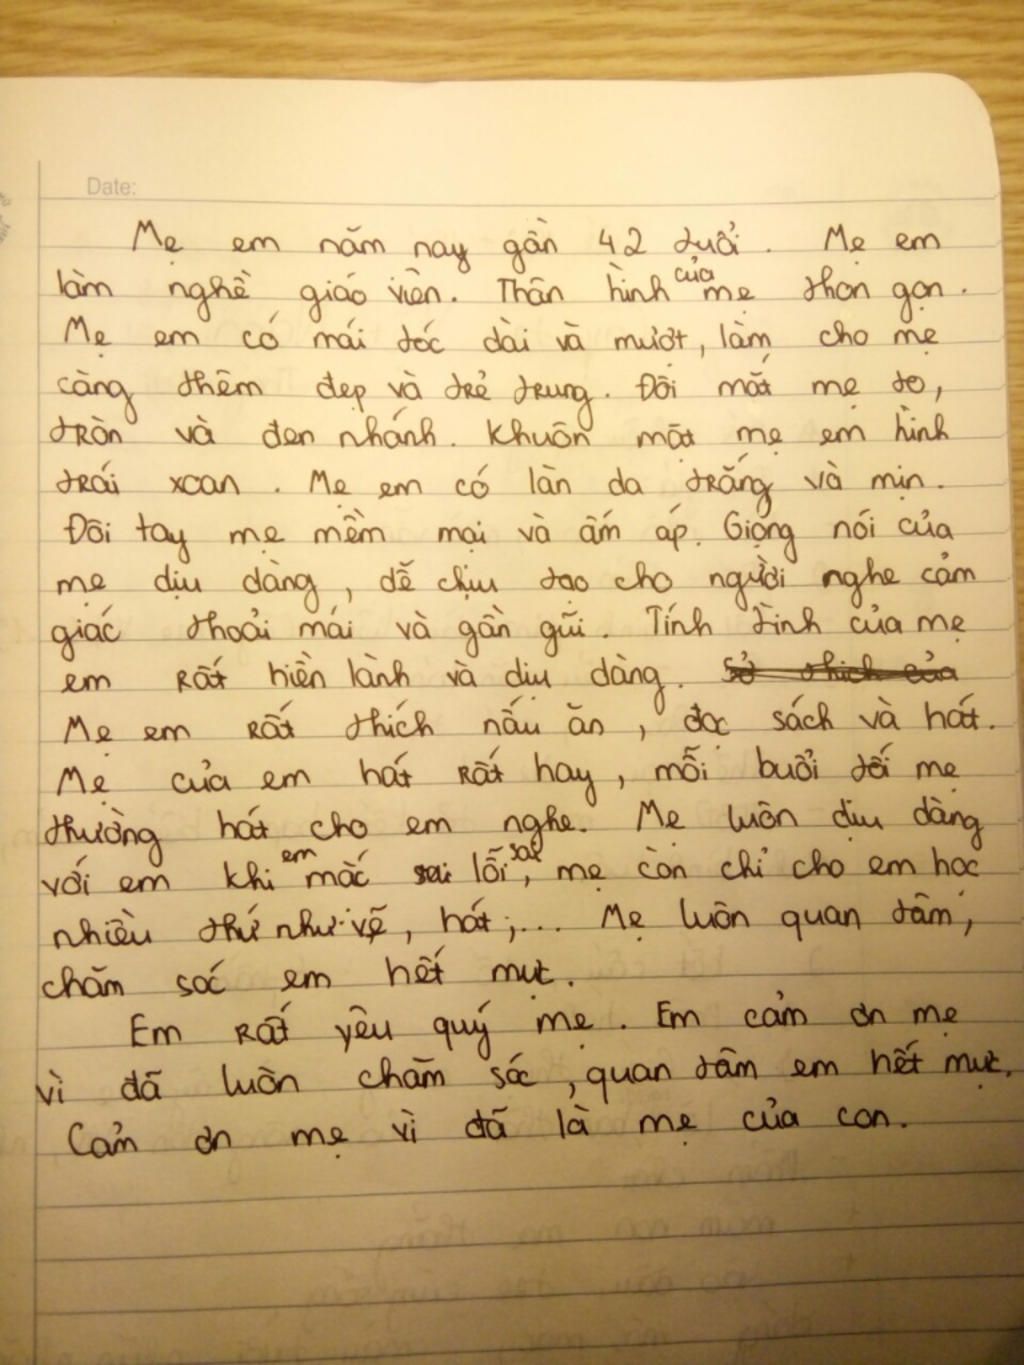 Date:
Mẹ em năm nay gần 42 tuổi. Mẹ em
làm nghề giáo viên. Thân hình của mẹ thon gọn.
Mẹ em có mái tóc dài và mượt, làm cho mẹ
càng thêm đẹp và trẻ trung. Đôi mắt mẹ to,
tròn và đen nhánh. Khuôn mặt mẹ em hình
trái xoan. Mẹ em có làn da trắng và mịn.
Đôi tay mẹ mềm mại và ấm áp. Giọng nói của
mẹ dịu dàng, dễ chịu tạo cho người nghe cảm
giác thoải mái và gần gũi. Tính tình của mẹ
em rất hiền lành và dịu dàng. Sở thích của
Mẹ em rất thích nấu ăn, đọc sách và hát.
Mẹ của em hát rất hay, mỗi buổi tối mẹ
thường hát cho em nghe. Mẹ luôn dịu dàng
với em khi em mắc sai lỗi sai, mẹ còn chỉ cho em học
nhiều thứ như: vẽ, hát;... Mẹ luôn quan tâm,
chăm sóc em hết mực.
Em rất yêu quý mẹ. Em cảm ơn mẹ
vì đã luôn chăm sóc, quan tâm em hết mực.
Cảm ơn mẹ vì đã là mẹ của con.